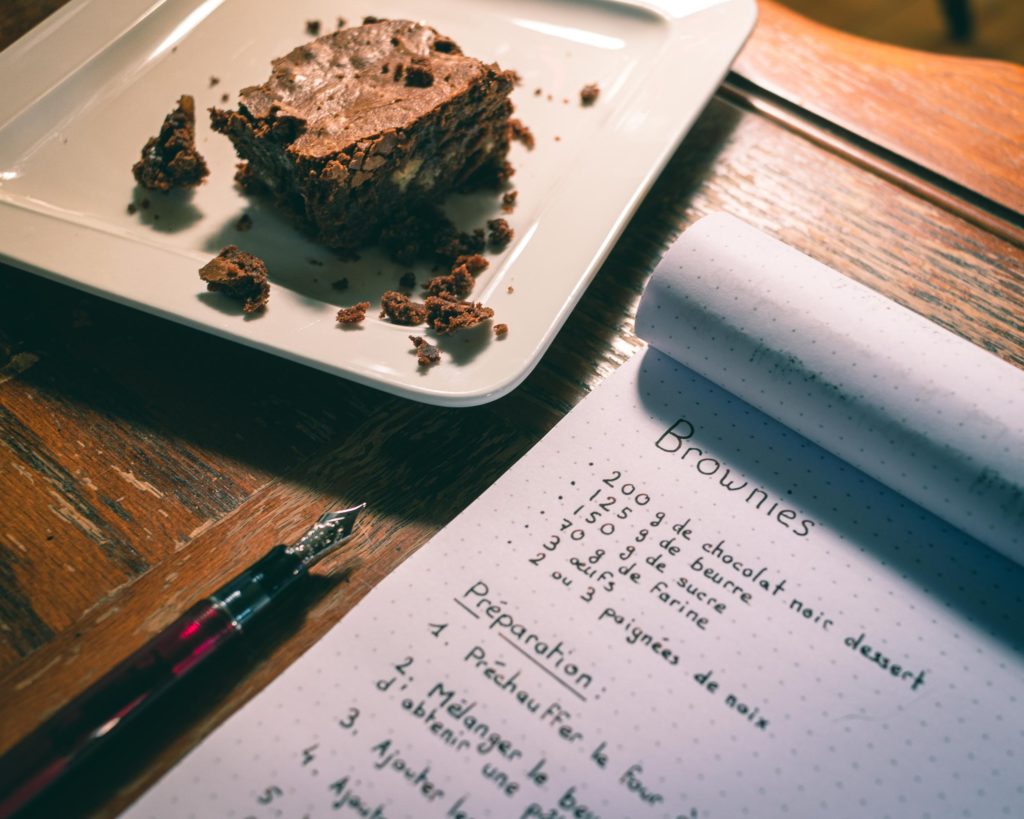 Brownies
· 200 g de chocolat noir dessert
· 125 g de beurre
· 150 g de sucre
· 70 g de farine
· 3 œufs
· 2 ou 3 poignées de noix
Préparation :
1. Préchauffer le four
2. Mélanger le
d'obtenir une
3. Ajouter
4. Ajouter
5.